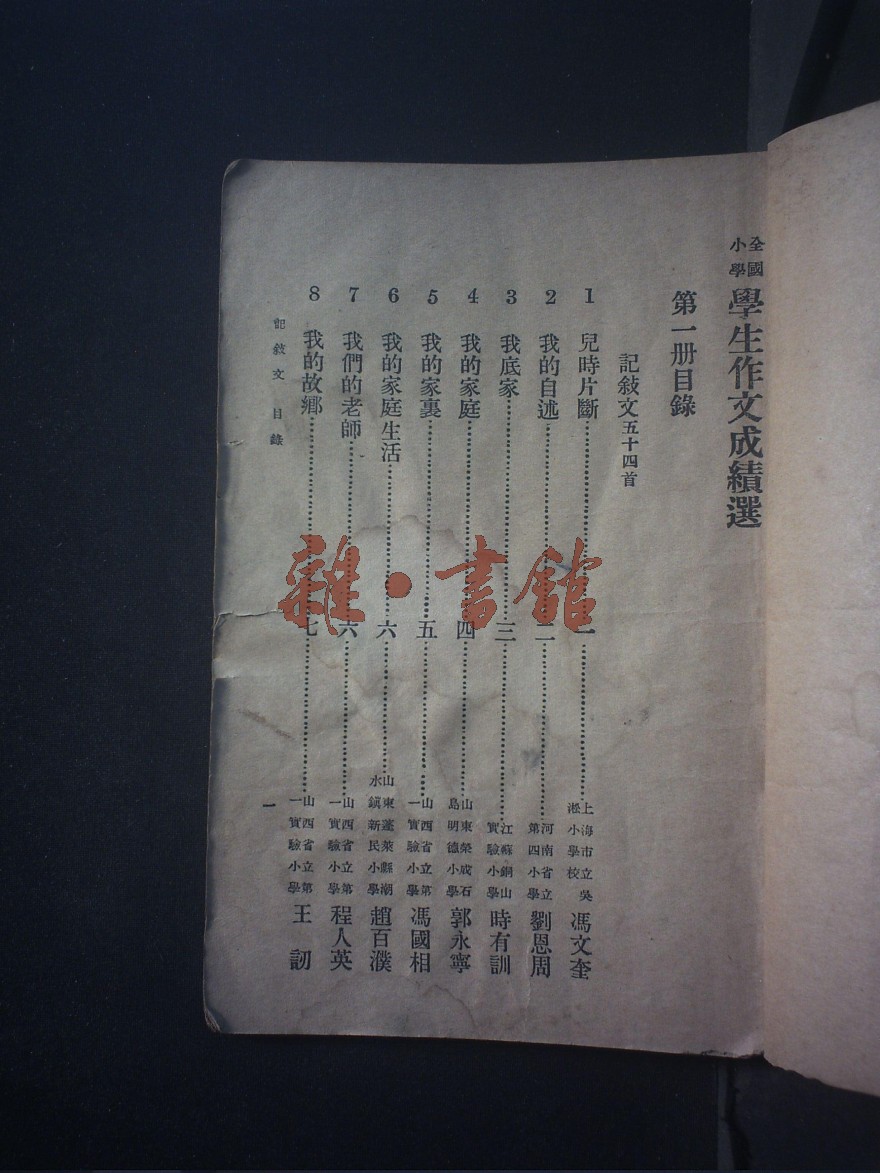 全國小學學生作文成績選
第一册目錄
記敍文五十四首
1 兒時片斷……一……上海市立吳淞小學校 馮文奎
2 我的自述……二……河南省立第四小學 劉恩周
3 我底家……三……江蘇銅山實驗小學 時有訓
4 我的家庭……四……山東榮成石島明德小學 郭永寧
5 我的家裏……五……山西省立第一實驗小學 馮國相
6 我的家庭生活……六……山東蓬萊縣潮水鎮新民小學 趙百濮
7 我們的老師……六……山西省立第一實驗小學 程人英
8 我的故鄉……七……山西省立第一實驗小學 王訒
記敍文 目錄
一
雜·書館